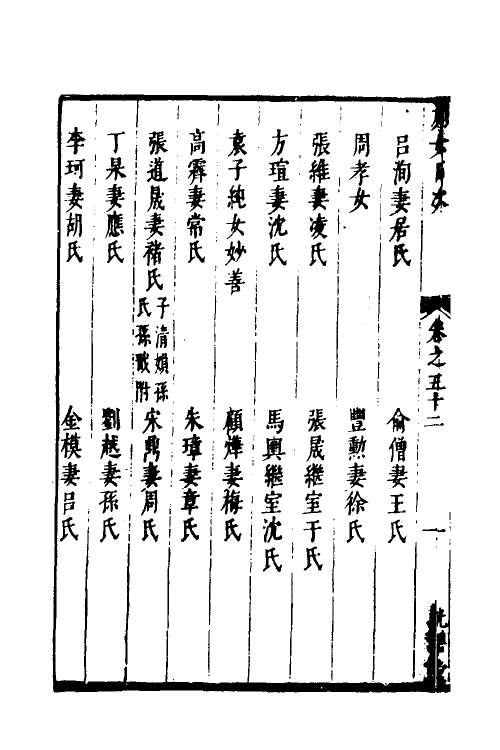 列女目次
卷之五十二
一
呂洵妻居氏
俞僧妻王氏
周孝女
豐勲妻徐氏
張維妻凌氏
張晟繼室于氏
方瑄妻沈氏
馬輿繼室沈氏
袁子純女妙善
顧燁妻梅氏
高霽妻常氏
朱璋妻章氏
張道晟妻褚氏
子清娘孫
氏孫畋附
宋鼎妻周氏
丁杲妻應氏
劉越妻孫氏
李珂妻胡氏
金模妻呂氏